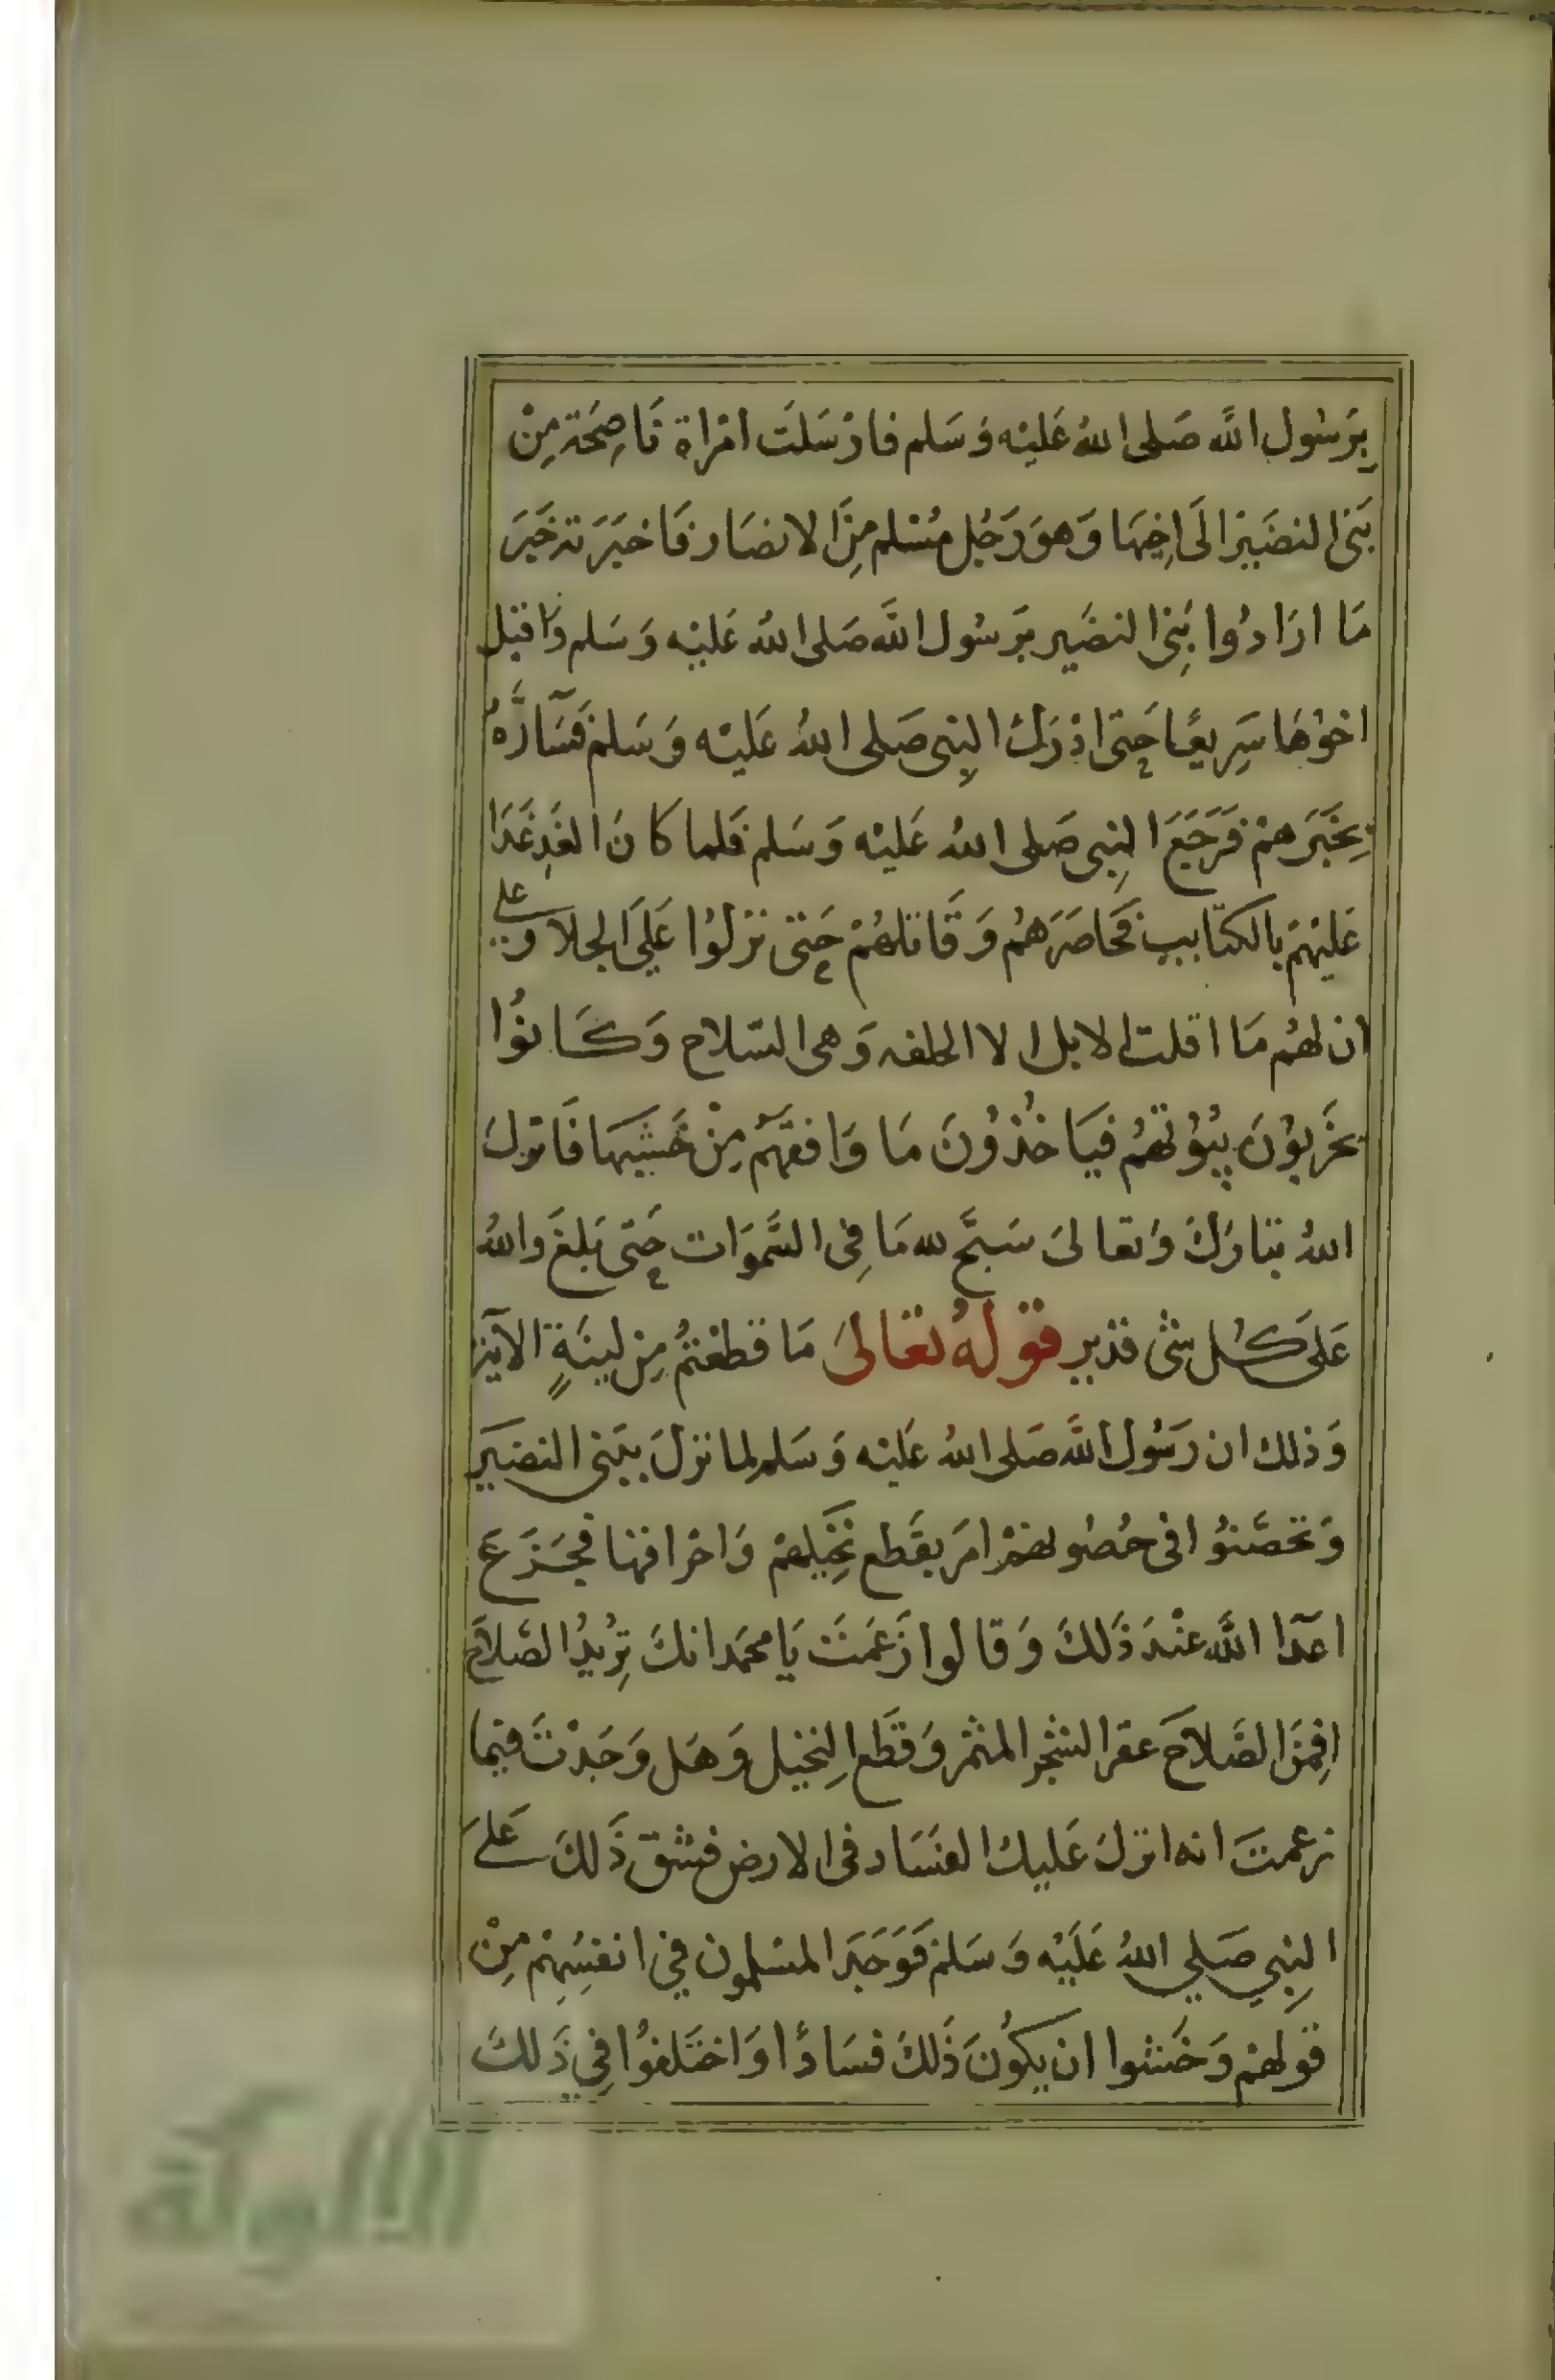 بِرَسُول اللَّه صَلى اللهُ عَليْه وَسَلم فارْسَلَت امْراة نَاصِحَة مِنْ
بَنى النضَيْر الَى اخِيْهَا وَهوَ رَجُل مُسْلم مِنَ الانصَار فَاخبَرَته خَبَرَ
مَا ارَادُوا بَنِى النضَير برَسُول اللَّه صَلى اللهُ عَليْه وَسَلم وَاقبَل
اخوْهَا سَرِيعًا حَتى ادْرَك النِبى صَلى اللهُ عَليْه وَسَلم فَسَآرَّهُ
بِخَبَرهمْ فَرَجَعَ النِبى صَلى اللهُ عَليْه وَسَلم فَلما كَانَ الغَدِ غَدَا
عَليْهمْ بالكتَايب فحَاصَرَهُم وَقَاتلهُمْ حَتى نزلوُا عَلَى الجلا وَعلى
ان لهُم مَا اقلت الابل الا الحلقه وَهى السّلاح وَكَانوُا
يخَربوْنَ بيُوْتهُم فيَاخُذوُنَ مَا وَافقهَم مِنْ خَشَبهَا فَانزلَ
اللهُ تبَارَكَ وَتعالىَ سَبَّح لله مَا فِى السَّموَات حَتى بَلغَ وَاللهُ
عَلى كُل شى قدير قوْلهُ تعَالىَ مَا قطعْتُم مِن لينَةٍ الآية
وَذلك ان رَسُول اللَّه صَلى اللهُ عَليْه وَسَلم لما نزلَ ببَنى النضيَر
وَتحصَّنوُا فى حُصُونهمْ امَر بقَطع نَخِيْلهمْ وَاحْراقهَا فجَزَعَ
اعَدآ اللَّه عنْدَ ذَلكَ وَقالوا زَعَمتَ يَا محمَد انكَ ترُيدُ الصَّلاحَ
افِمنَ الصَّلاحَ عقر الشجر المثمر وَقَطع النِخيل وَهَل وَجَدْتَ فيَما
زعمتَ انه انزلَ عَليكَ الفسَاد فى الارض فشق ذَلكَ عَلىَ
النِبي صَلي اللهُ عَلَيْه وَسَلم فَوَجَد المسْلمون في انفسِهِمْ مِنْ
قولهمْ وَخَشوا ان يكوُنَ ذَلكَ فسَادًا وَاختَلفوُا فِي ذَلكَ
الألوكة